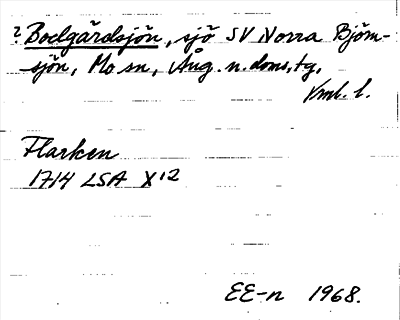 ? Boelgärdsjön, sjö SV Norra Björn-
sjön, Mo sn, Ång. n. doms. tg,
Vml. l.
Flarken
1714 LSA X12
EE-n 1968.